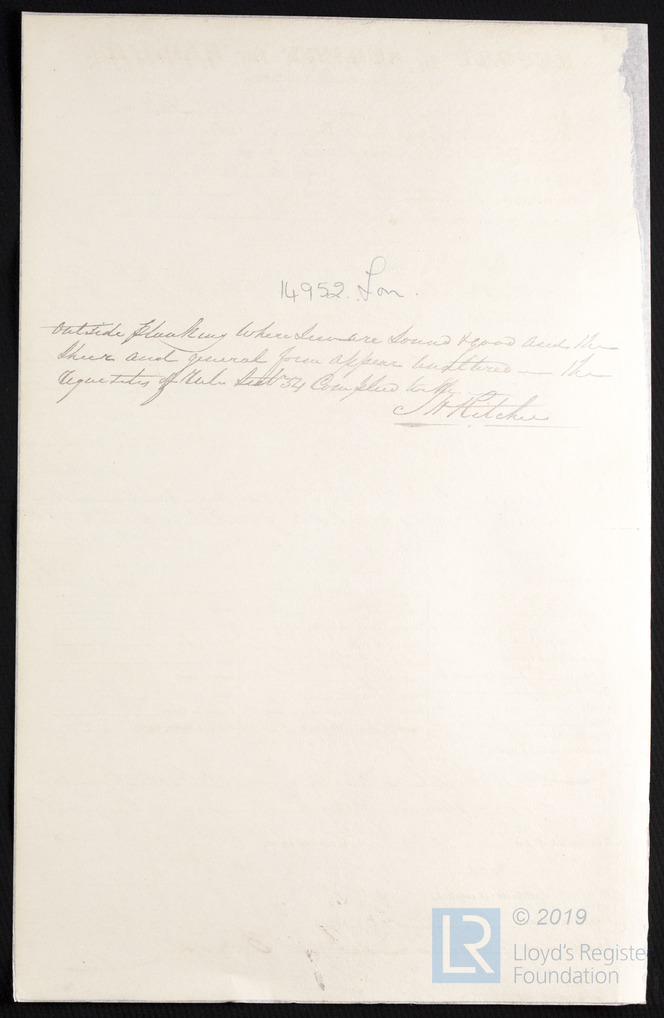 14952. Lon.
Outside planking where seen are sound & good and the
sheer and general form appear unaltered — the
requisites of Rule Sect 54 Complied with
J H Ritchie
LR
© 2019
Lloyd's Registe
Foundation